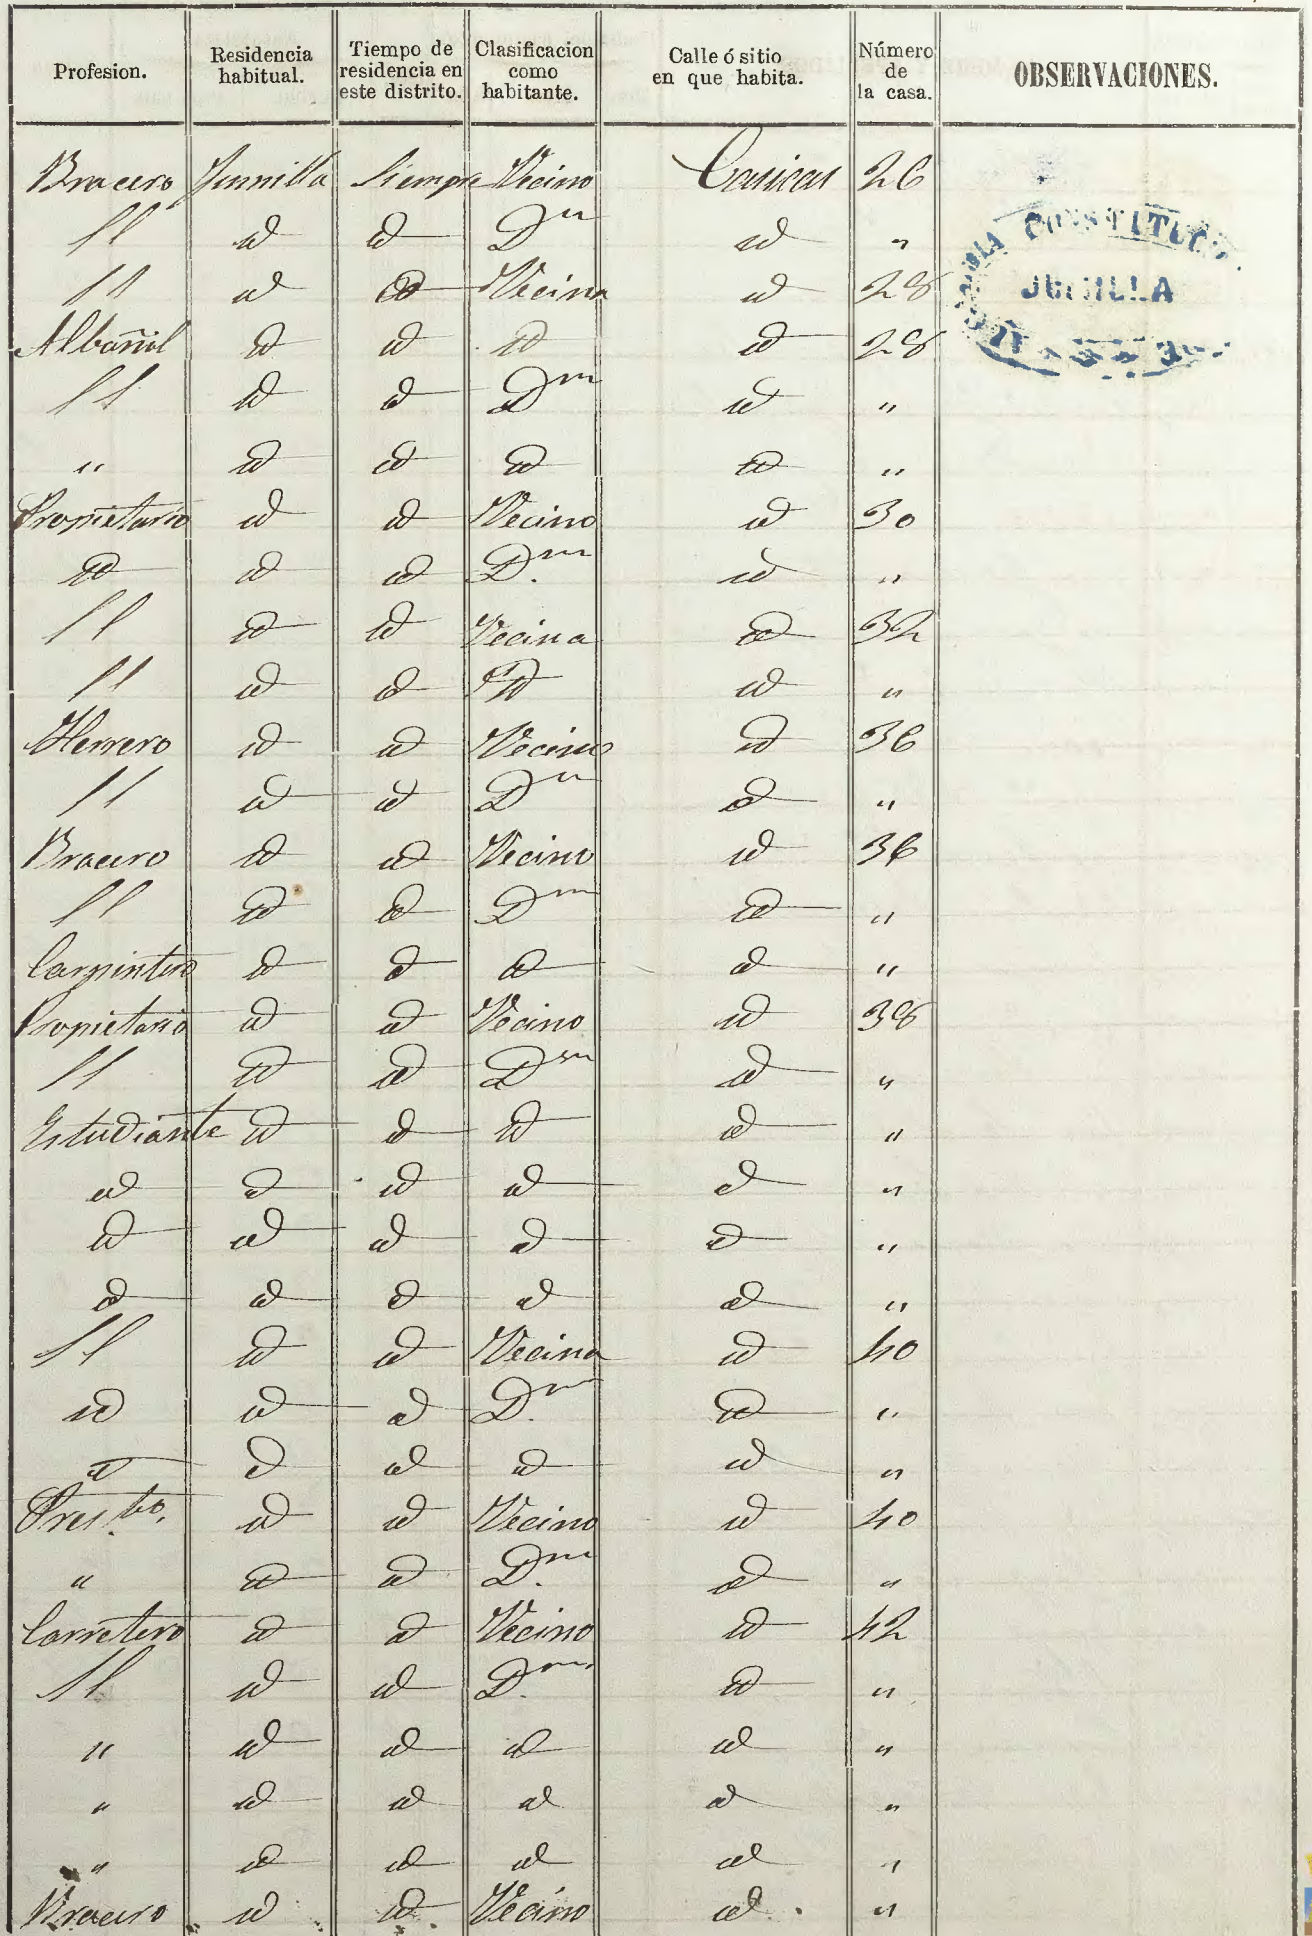 Profesion. | Residencia habitual. | Tiempo de residencia en este distrito. | Clasificacion como habitante. | Calle ó sitio en que habita. | Número de la casa. | OBSERVACIONES.
Bracero Jumilla Siempre Vecino Casicas 26
" id id Dm id "
" id id Vecina id 28
Albañil id id id id 28
" id id Dm id "
" id id id id "
Propietario id id Vecino id 30
id id id Dm id "
" id id Vecina id 32
" id id id id "
Herrero id id Vecino id 36
" id id Dm id "
Bracero id id Vecino id 36
" id id Dm id "
Carpintero id id id id "
Propietario id id Vecino id 38
" id id Dm id "
Estudiante id id id id "
id id id id id "
id id id id id "
id id id id id "
" id id Vecina id 40
id id id Dm id "
id id id id id "
Presbo. id id Vecino id 40
" id id Dm id "
Carretero id id Vecino id 42
" id id Dm. id "
" id id id id "
" id id id id "
" id id id id "
Bracero id id Vecino id "
CONSTITUC
JUMILLA